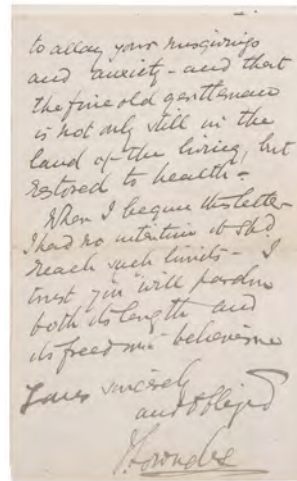 to allay your misgivings
and anxiety - and that
the fine old gentleman
is not only still in the
land of the living, but
restored to health -
When I began this letter
I had no intention it shd
reach such limits - I
trust you will pardon
both its length and
its freedom believe me
Yours sincerely
and obliged